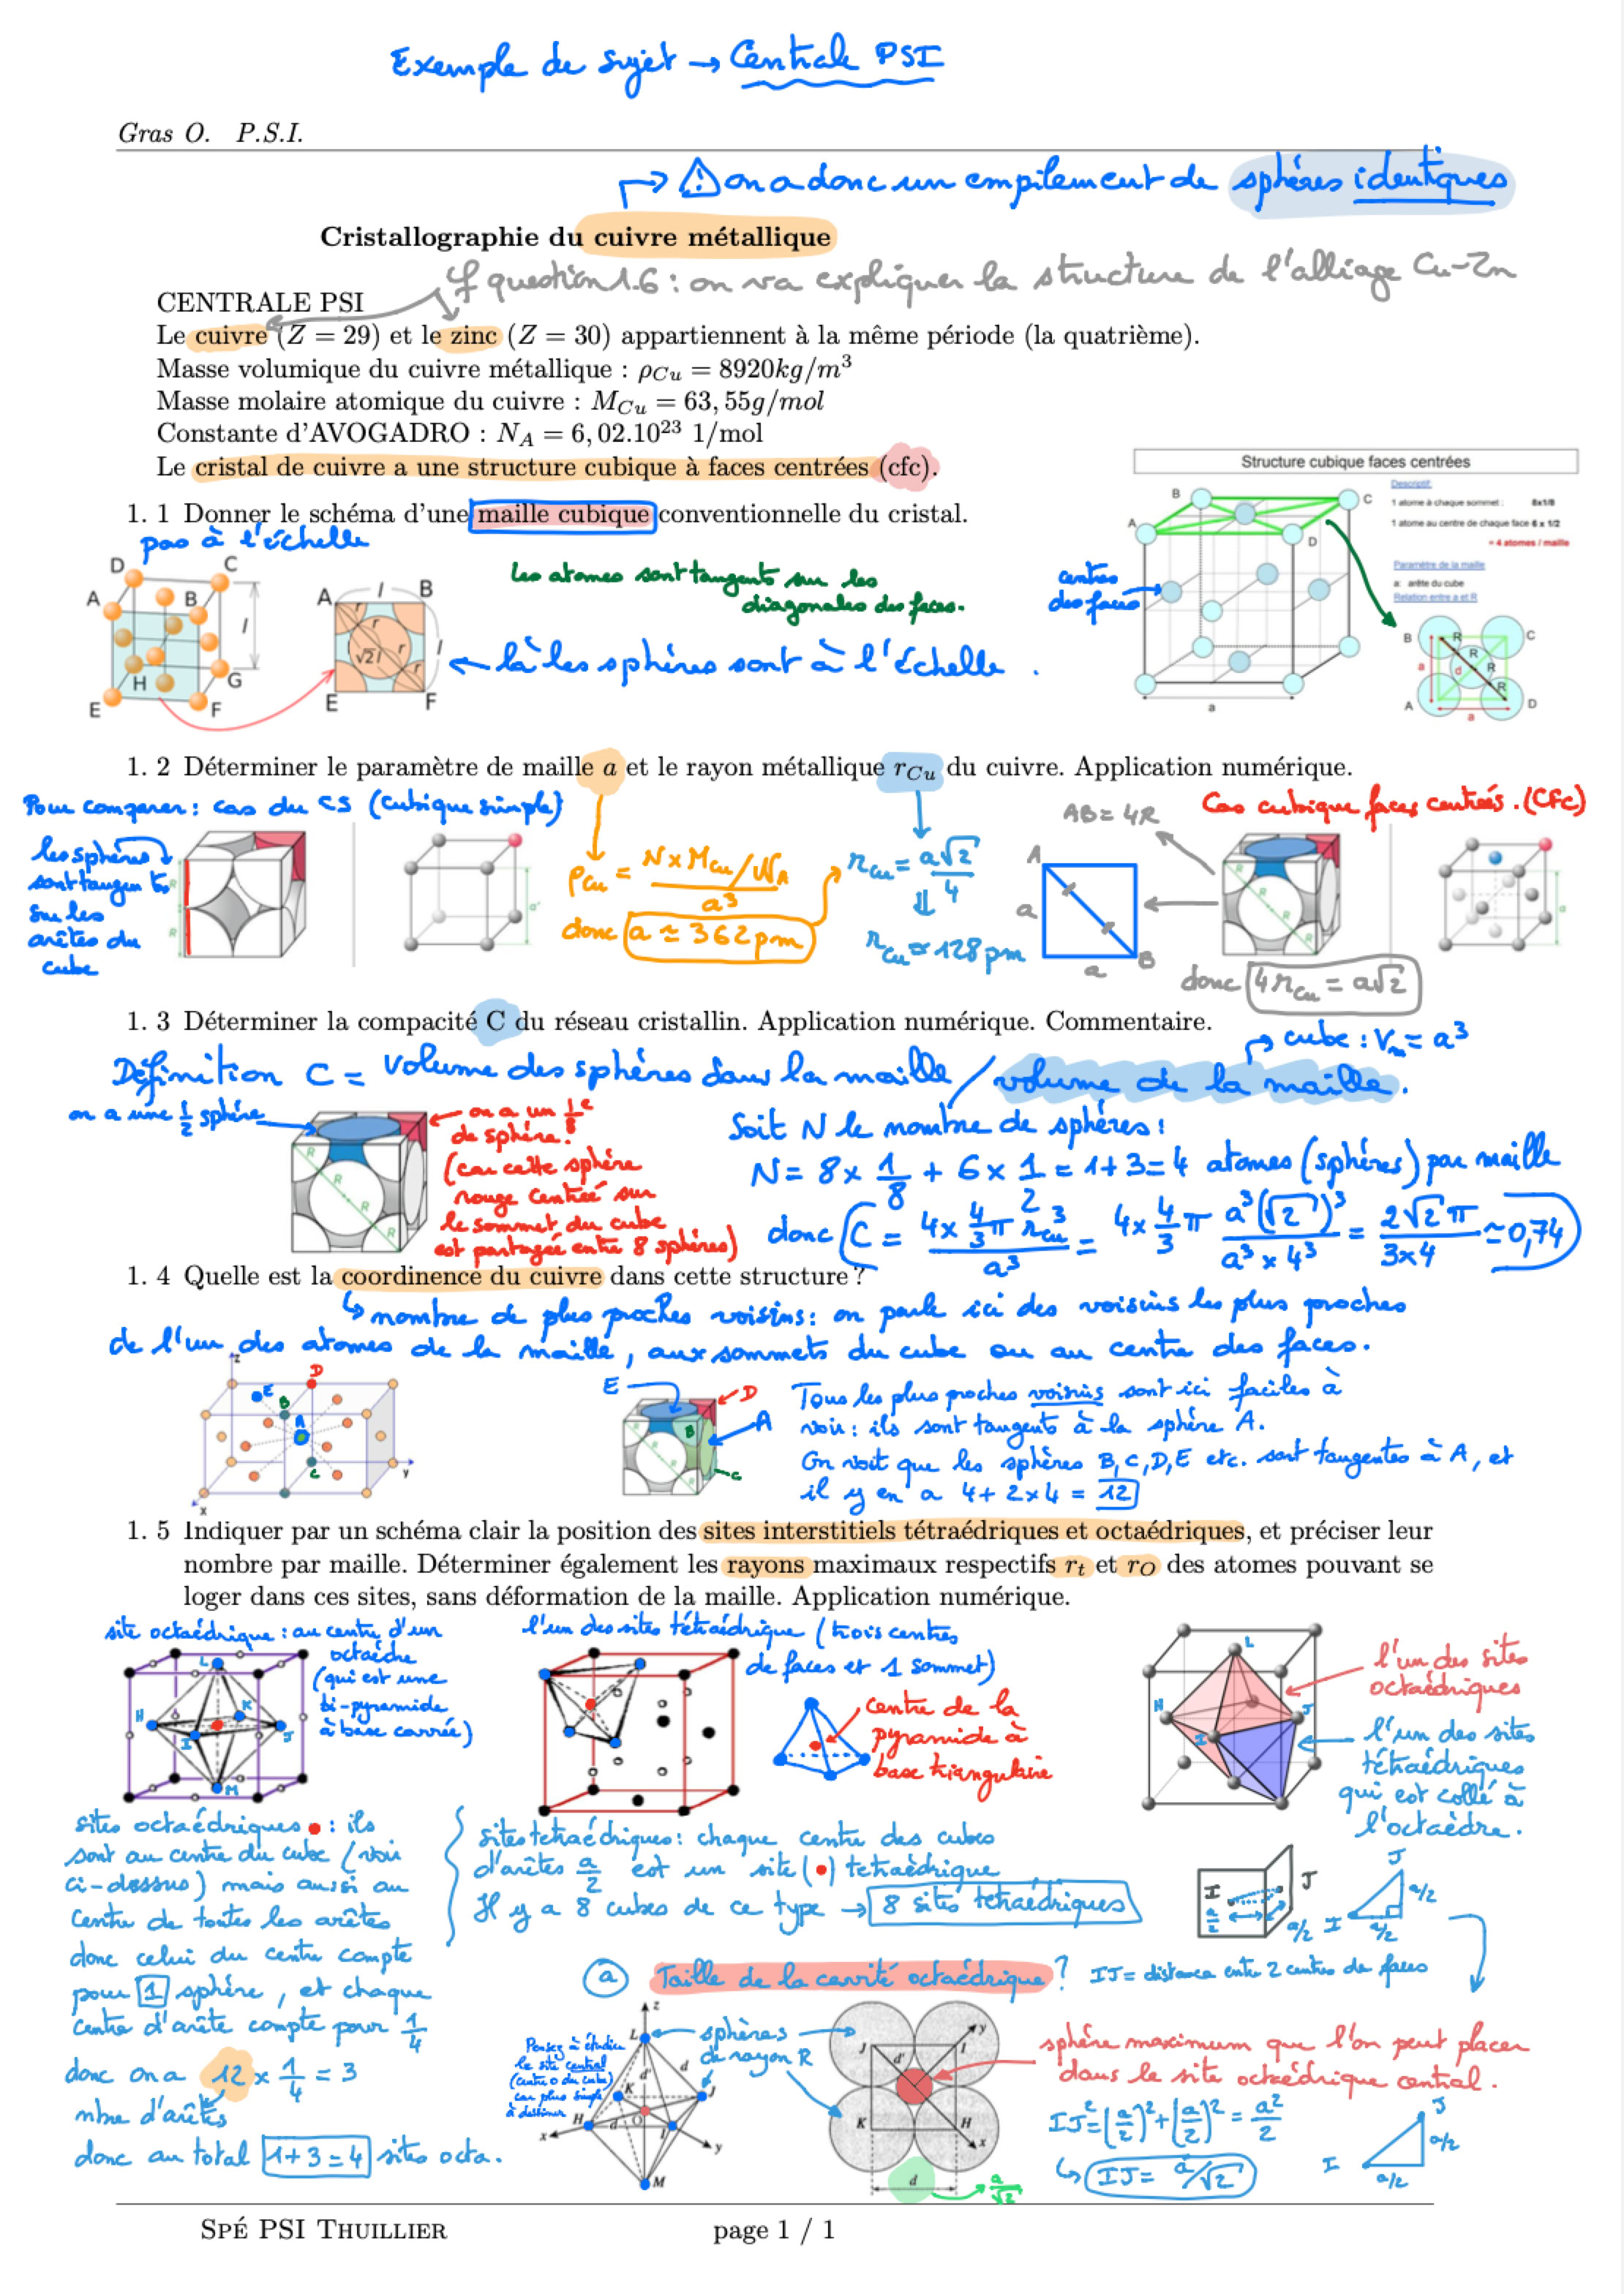 Exemple de sujet → Centrale PSI
Gras O. P.S.I.
→ ⚠ on a donc un empilement de sphères identiques
Cristallographie du cuivre métallique
cf question 1.6 : on va expliquer la structure de l'alliage Cu-Zn
CENTRALE PSI
Le cuivre (Z = 29) et le zinc (Z = 30) appartiennent à la même période (la quatrième).
Masse volumique du cuivre métallique : ρCu = 8920kg/m³
Masse molaire atomique du cuivre : MCu = 63,55g/mol
Constante d'AVOGADRO : NA = 6,02.10²³ 1/mol
Le cristal de cuivre a une structure cubique à faces centrées (cfc).
Structure cubique faces centrées
Descriptif:
1 atome à chaque sommet : 8x1/8
1 atome au centre de chaque face 6 x 1/2
= 4 atomes / maille
Paramètre de la maille
a: arête du cube
Relation entre a et R
B
C
A
D
a
B
C
A
D
R
R
R
R
d
a
a
centres des faces
1. 1 Donner le schéma d'une maille cubique conventionnelle du cristal.
pas à l'échelle
D
C
A
B
l
H
G
E
F
A
l
B
r
√2l
r
r
l
E
F
les atomes sont tangents sur les
diagonales des faces.
← là les sphères sont à l'échelle.
1. 2 Déterminer le paramètre de maille a et le rayon métallique rCu du cuivre. Application numérique.
Pour comparer : cas du CS (cubique simple)
les sphères
sont tangentes
sur les
arêtes du
cube
ρCu = N×MCu/NA / a³
donc a ≃ 362 pm
rCu = a√2/4
⇓
rCu ≃ 128 pm
AB = 4R
Cas cubique faces centrées. (CFC)
A
a
a
B
donc 4rCu = a√2
1. 3 Déterminer la compacité C du réseau cristallin. Application numérique. Commentaire.
→ cube : Vm = a³
Définition C = volume des sphères dans la maille / volume de la maille.
on a une ½ sphère
← on a un 1/8e
de sphère !
(car cette sphère
rouge centrée sur
le sommet du cube
est partagée entre 8 sphères)
R
R
R
R
Soit N le nombre de sphères :
N = 8 × 1/8 + 6 × 1/2 = 1+3 = 4 atomes (sphères) par maille
donc C = 4×4/3 π rCu³ / a³ = 4×4/3 π a³(√2)³ / a³×4³ = 2√2π / 3×4 ≃ 0,74
1. 4 Quelle est la coordinence du cuivre dans cette structure ?
↳ nombre de plus proches voisins : on parle ici des voisins les plus proches
de l'un des atomes de la maille, aux sommets du cube ou au centre des faces.
z
D
E
B
A
C
y
x
E
D
B
A
C
Tous les plus proches voisins sont ici faciles à
voir : ils sont tangents à la sphère A.
On voit que les sphères B, C, D, E etc. sont tangentes à A, et
il y en a 4 + 2×4 = 12
1. 5 Indiquer par un schéma clair la position des sites interstitiels tétraédriques et octaédriques, et préciser leur
nombre par maille. Déterminer également les rayons maximaux respectifs rt et rO des atomes pouvant se
loger dans ces sites, sans déformation de la maille. Application numérique.
site octaédrique : au centre d'un
octaèdre
(qui est une
bi-pyramide
à base carrée)
L
H
K
I
J
M
l'un des sites tétraédrique (trois centres
de faces et 1 sommet)
centre de la
pyramide à
base triangulaire
L
H
I
J
l'un des sites
octaédriques
l'un des sites
tétraédriques
qui est collé à
l'octaèdre.
sites octaédriques • : ils
sont au centre du cube (voir
ci-dessus) mais aussi au
centre de toutes les arêtes
donc celui du centre compte
pour 1 sphère, et chaque
centre d'arête compte pour 1/4
donc on a 12 × 1/4 = 3
nbre d'arêtes
donc au total 1+3 = 4 sites octa.
sites tetraédriques : chaque centre des cubes
d'arêtes a/2 est un site (•) tetraédrique
Il y a 8 cubes de ce type → 8 sites tetraédriques
I
J
a/2
a/2
J
a/2
I
a/2
IJ = distance entre 2 centres de faces
ⓐ Taille de la cavité octaédrique ?
Pensez à étudier
le site central
(centre O du cube)
car plus simple
à dessiner
z
L
d
d'
K
J
H
d
O
I
x
y
M
sphères
de rayon R
J
I
y
d'
K
H
x
d
→ a/√2
sphère maximum que l'on peut placer
dans le site octaédrique central.
IJ² = (a/2)² + (a/2)² = a²/2
↳ IJ = a/√2
J
a/2
I
a/2
SPÉ PSI THUILLIER
page 1 / 1